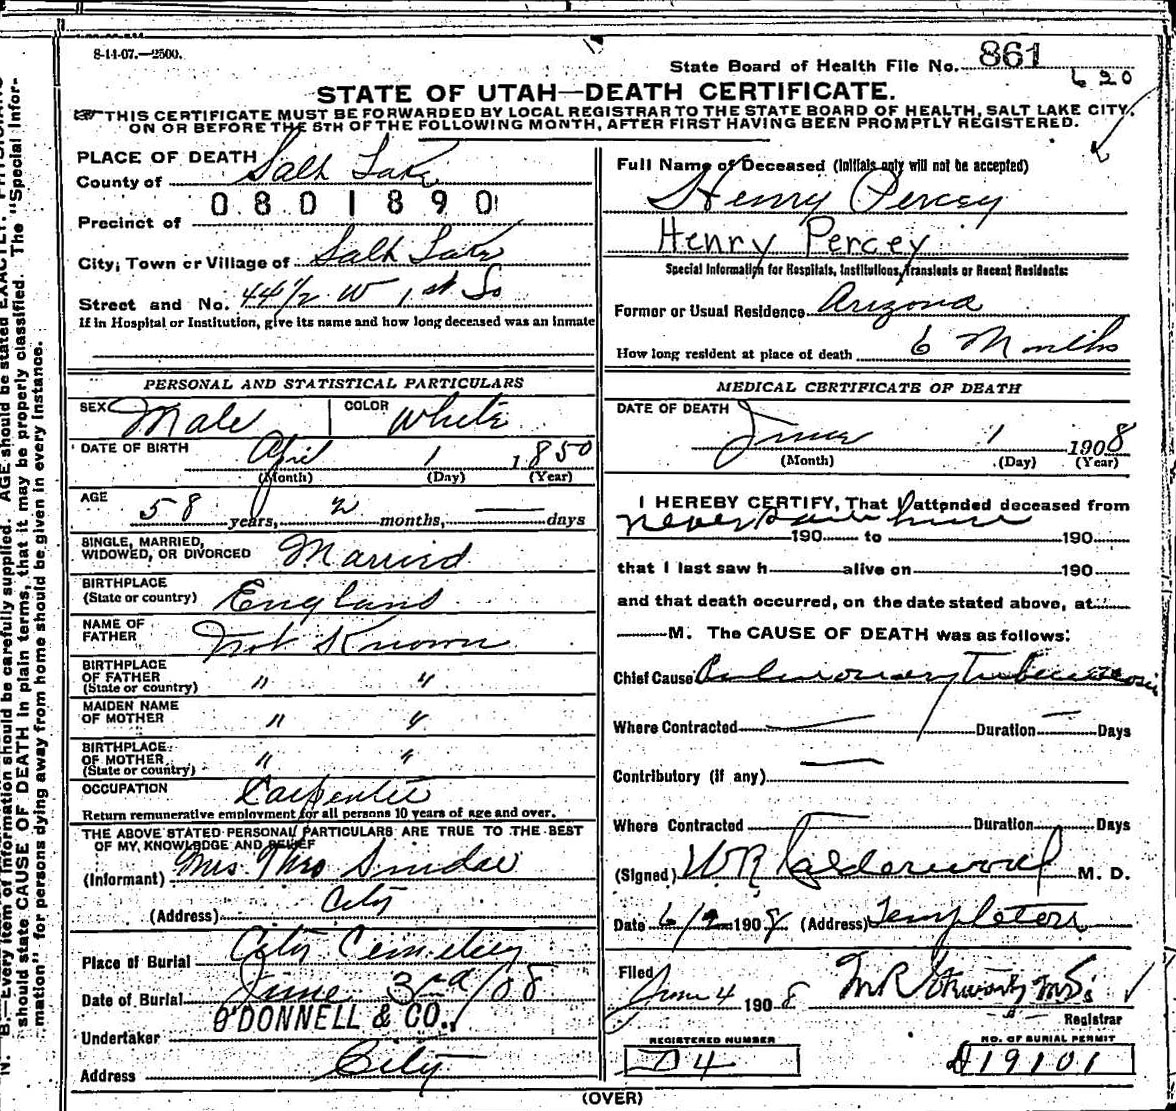 8-14-07.—2500.
State Board of Health File No. 861
620
STATE OF UTAH—DEATH CERTIFICATE.
THIS CERTIFICATE MUST BE FORWARDED BY LOCAL REGISTRAR TO THE STATE BOARD OF HEALTH, SALT LAKE CITY,
ON OR BEFORE THE 5TH OF THE FOLLOWING MONTH, AFTER FIRST HAVING BEEN PROMPTLY REGISTERED.
PLACE OF DEATH
County of Salt Lake
0801890
Precinct of
City, Town or Village of Salt Lake
Street and No. 44½ W 1st So
If in Hospital or Institution, give its name and how long deceased was an inmate
PERSONAL AND STATISTICAL PARTICULARS
SEX Male COLOR White
DATE OF BIRTH April 1 1850
(Month) (Day) (Year)
AGE
58 years, 2 months, — days
SINGLE, MARRIED,
WIDOWED, OR DIVORCED Married
BIRTHPLACE
(State or country) England
NAME OF
FATHER Not Known
BIRTHPLACE
OF FATHER
(State or country) " "
MAIDEN NAME
OF MOTHER " "
BIRTHPLACE
OF MOTHER
(State or country) " "
OCCUPATION Carpenter
Return remunerative employment for all persons 10 years of age and over.
THE ABOVE STATED PERSONAL PARTICULARS ARE TRUE TO THE BEST
OF MY KNOWLEDGE AND BELIEF
(Informant) Mrs. Thos
(Address) City
Place of Burial City Cemetery
Date of Burial June 3rd/08
O'DONNELL & CO.,
Undertaker
Address City
Full Name of Deceased (Initials only will not be accepted)
Henry Percey
Henry Percey
Special Information for Hospitals, Institutions, Transients or Recent Residents:
Former or Usual Residence Arizona
How long resident at place of death 6 Months
MEDICAL CERTIFICATE OF DEATH
DATE OF DEATH June 1 1908
(Month) (Day) (Year)
I HEREBY CERTIFY, That I attended deceased from
never saw him
190 to 190
that I last saw h alive on 190
and that death occurred, on the date stated above, at
M. The CAUSE OF DEATH was as follows:
Chief Cause Pulmonary Tuberculosis
Where Contracted — Duration — Days
Contributory (if any) —
Where Contracted Duration Days
(Signed) W R Calderwood M. D.
Date 6/2 1908. (Address) Templeton
Filed June 4 1908 M R Stewart M.D.
Registrar
REGISTERED NUMBER
D4
NO. OF BURIAL PERMIT
D19101
(OVER)
N. B.—Every item of information should be carefully supplied. AGE should be stated EXACTLY.
should state CAUSE OF DEATH in plain terms, that it may be properly classified. The "Special Infor-
mation" for persons dying away from home should be given in every instance.